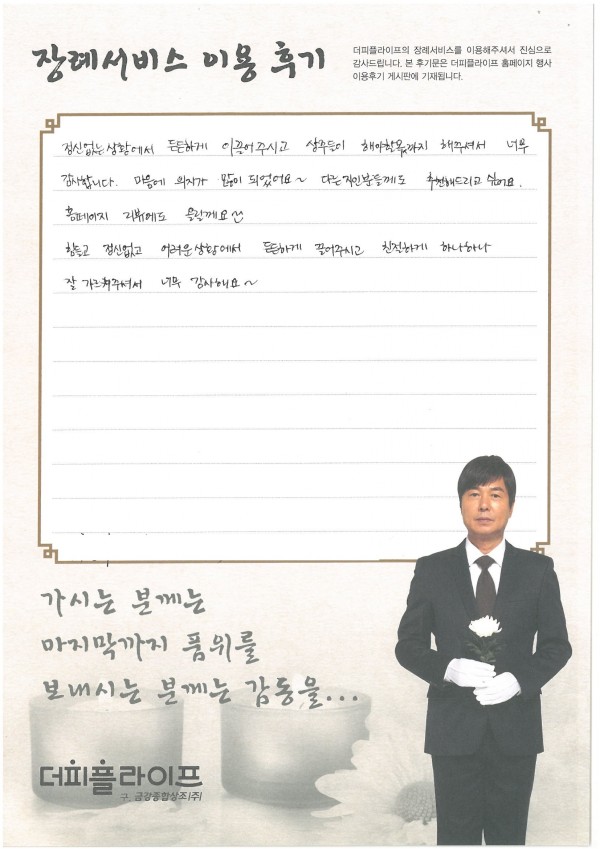 장례서비스 이용 후기
더피플라이프의 장례서비스를 이용해주셔서 진심으로
감사드립니다. 본 후기문은 더피플라이프 홈페이지 행사
이용후기 게시판에 기재됩니다.
정신없는 상황에서 든든하게 이끌어주시고 상주들이 해야할 몫까지 해주셔서 너무
감사합니다. 마음에 의지가 많이 되었어요~ 다른 지인분들께도 추천해드리고 싶어요.
홈페이지 리뷰에도 올릴께요
힘들고 정신없고 어려운 상황에서 든든하게 끌어주시고 친절하게 하나하나
잘 가르쳐주셔서 너무 감사해요~
가시는 분께는
마지막까지 품위를
보내시는 분께는 감동을...
더피플라이프
구. 금강종합상조(주)